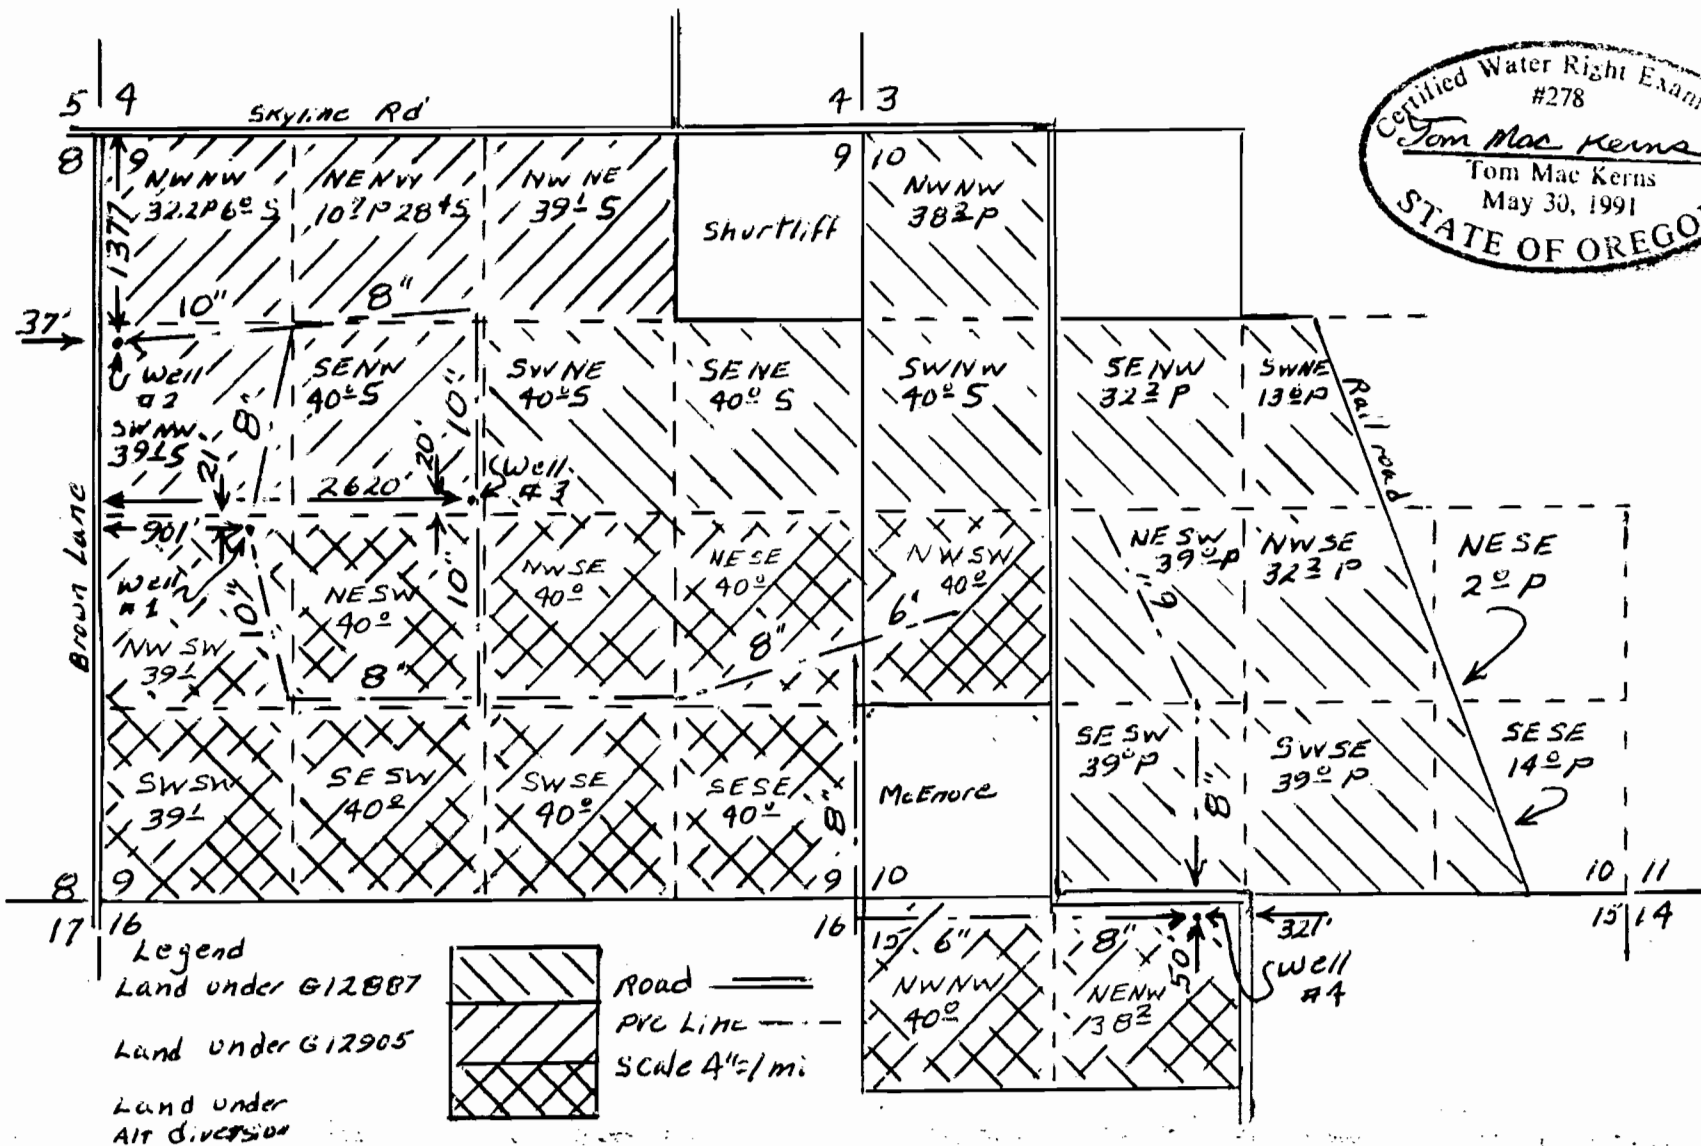 5 | 4
Skyline Rd
4 | 3
Certified Water Right Exam
#278
Tom Mac Kerns
Tom Mac Kerns
May 30, 1991
STATE OF OREGO
8 | 9
9 | 10
NWNW
32.2P 6º S
NENW
10⁷P 28⁴S
NW NE
39¹ S
Shurtliff
NWNW
38² P
1377
37'
10"
8"
Well
#2
SW NW
39¹S
SENW
40º S
SWNE
40º S
SENE
40º S
SWNW
40º S
SENW
32² P
SWNE
13ºP
Rail road
8"
10"
21'
20'
2620'
Well
#3
Brown Lane
901'
Well
#1
10"
NW SW
39¹
NESW
40º
10"
NWSE
40º
NESE
40º
NWSW
40º
NE SW
39ºP
NWSE
32² P
NESE
2º P
6"
6"
8"
8"
SWSW
39¹
SE SW
40º
SWSE
40º
SESE
40º
8"
McEnore
SE SW
39ºP
8"
SWSE
39º P
SESE
14º P
8 | 9
9 | 10
10 | 11
17 | 16
16 | 15
15 | 14
6"
8"
50'
321'
Well
#4
NWNW
40º
NENW
38²
Legend
Land under G12887
Land under G12905
Land under
Alt diversion
Road
PVC Line
Scale 4"=1 mi